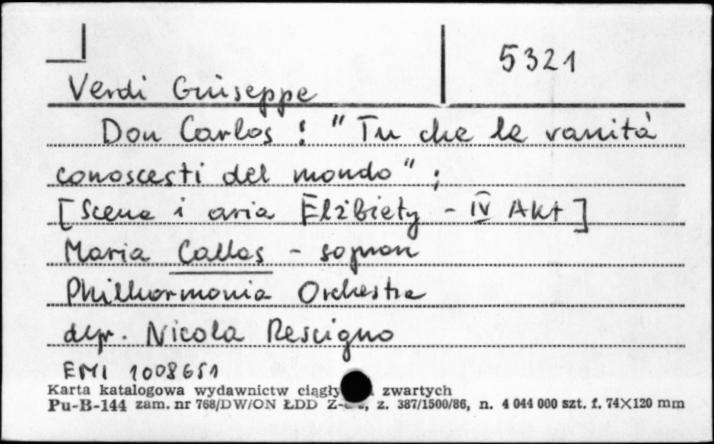 5321
Verdi Giuseppe
Don Carlos : "Tu che le vanità
conoscesti del mondo" ;
[Scena i aria Elżbiety - IV Akt]
Maria Callas - sopran
Philharmonia Orchestra
dyr. Nicola Rescigno
EMI 1008651
Karta katalogowa wydawnictw zwartych
Pu-B-144 zam. nr 768/DW/ON ŁDD z. 387/1500/86, n. 4 044 000 szt. f. 74×120 mm